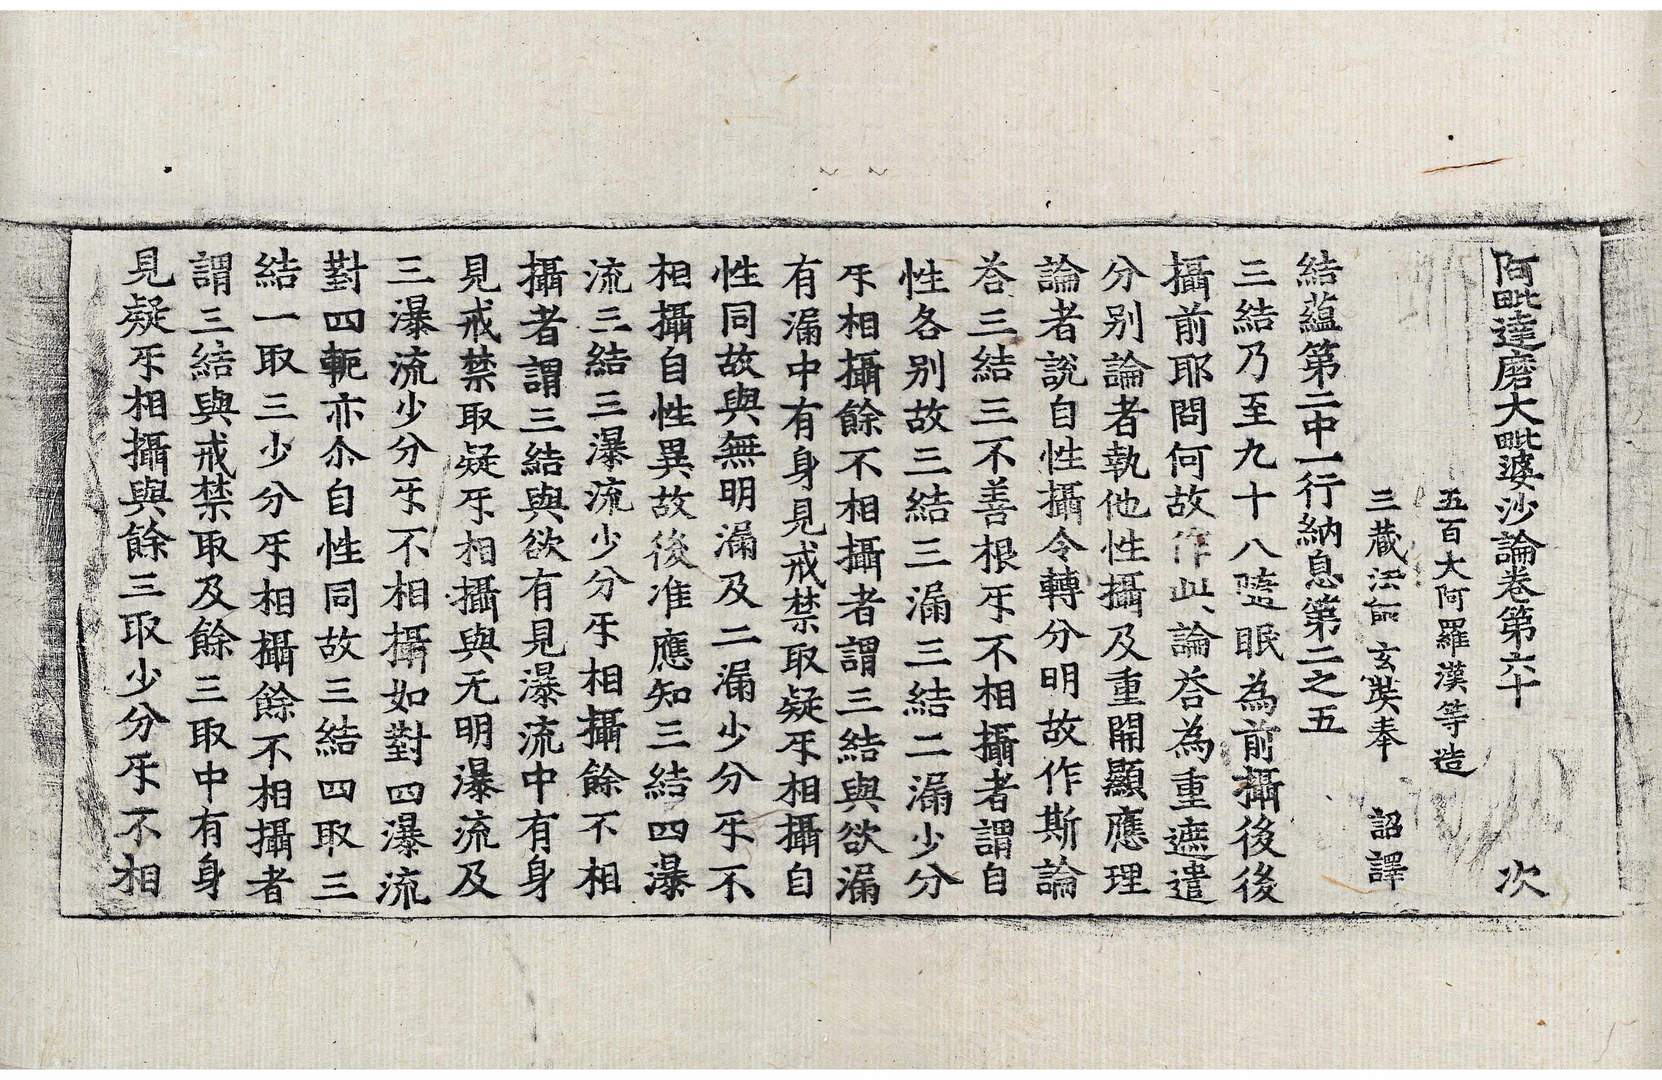 阿毗達磨大毗婆沙論卷第六十 次
五百大阿羅漢等造
三藏法師 玄奘奉 詔譯
結蘊第二中一行納息第二之五
三結乃至九十八隨眠為前攝後後
攝前耶問何故作此論荅為重遮遣
分別論者執他性攝及重開顯應理
論者說自性攝令轉分明故作斯論
荅三結三不善根㸦不相攝者謂自
性各別故三結三漏三結二漏少分
㸦相攝餘不相攝者謂三結與欲漏
有漏中有身見戒禁取疑㸦相攝自
性同故與無明漏及二漏少分㸦不
相攝自性異故後准應知三結四瀑
流三結三瀑流少分㸦相攝餘不相
攝者謂三結與欲有見瀑流中有身
見戒禁取疑㸦相攝與无明瀑流及
三瀑流少分㸦不相攝如對四瀑流
對四軛亦尒自性同故三結四取三
結一取三少分㸦相攝餘不相攝者
謂三結與戒禁取及餘三取中有身
見疑㸦相攝與餘三取少分㸦不相